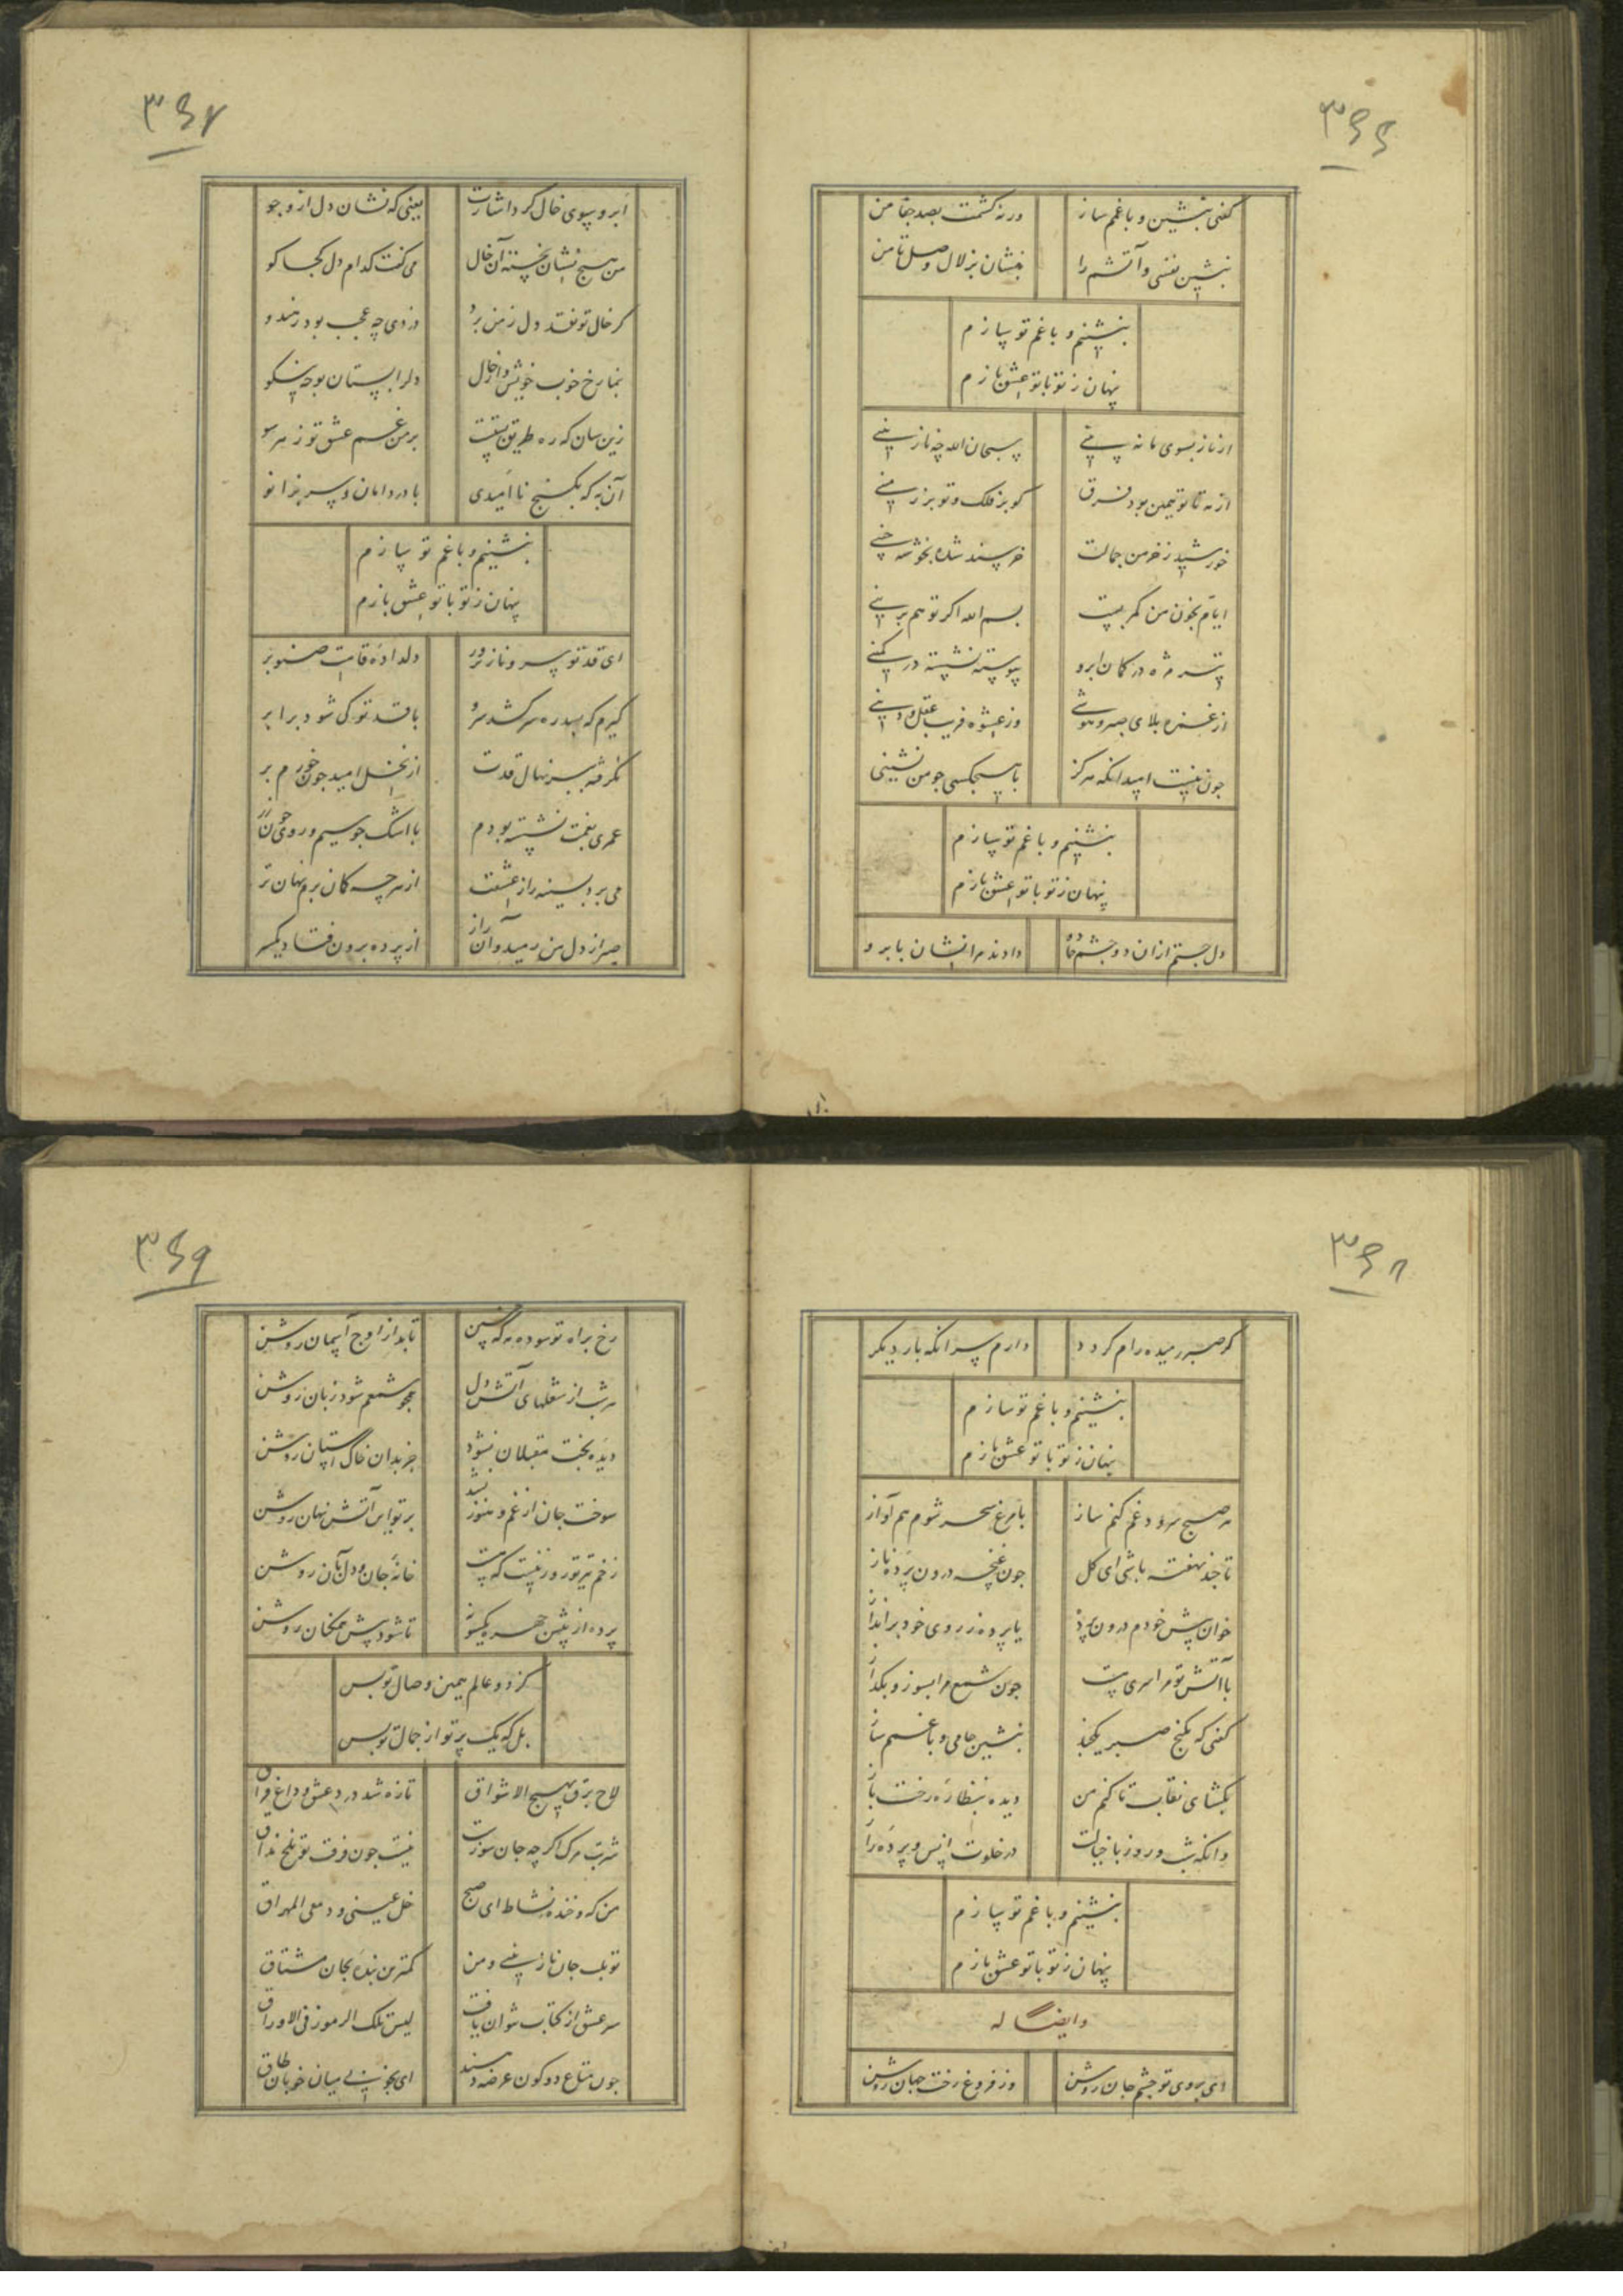 ۳۶۶
گفتی بنشین و با غمم ساز
ورنه کشمت بصد جفا من
بنشین نفسی و آتشم را
بنشان بزلال وصل تا من
بنشینم و با غم تو سازم
پنهان ز تو با تو عشق بازم
از ناز بسوی ما نه بینی
سبحان الله چه نازنینی
از مه تا تو همین بود فرق
کو بر فلک و تو بر زمینی
خورشید ز خرمن جمالت
خرسند شده بخوشه چینی
ایام بخون من کمر بست
بسم الله اگر تو هم برینی
تیر مژه در کمان ابرو
پیوسته نشسته در کمینی
از غمزه بلای صبر و هوشی
وز عشوه فریب عقل و دینی
چون نیست امید آنکه هرگز
با هیچکسی چو من نشینی
بنشینم و با غم تو سازم
پنهان ز تو با تو عشق بازم
دل جستم ازان دو چشم جادو
دادند مرا نشان بابرو
۳۶۷
ابرو بسوی خال کرد اشارت
یعنی که نشان دل ازو جو
من هیچ نشان نجسته آن خال
می گفت کدام دل کجا کو
گر خال تو نقد دل ز من برد
دزدی چه عجب بود ز هندو
بنما رخ خوب خویش و از خال
دل را بستان بوجه نیکو
زین سان که ره طریق بست
بر من غم عشق تو ز هر سو
آن به که بکنج ناامیدی
با درد امان و سر بزانو
بنشینم و با غم تو سازم
پنهان ز تو با تو عشق بازم
ای قد تو سرو ناز پرور
دلداده قامتت صنوبر
گیرم که بسدره سر کشد سرو
با قد تو کی شود برابر
نگرفته ببر نهال قدت
از نخل امید چون خورم بر
عمری بغمت نشسته بودم
با اشک چو سیم و روی چون زر
می برد بسینه راز عشقت
از هرچه گمان برم نهان تر
صبر از دل من رمید و آن راز
از پرده برون فتاد یکسر
۳۶۸
گر صبر رمیده رام گردد
دارم سر آنکه بار دیگر
بنشینم و با غم تو سازم
پنهان ز تو با تو عشق بازم
هر صبح سرود غم کنم ساز
با مرغ سحر شوم هم آواز
تا چند نهفته باشی ای گل
چون غنچه درون پرده ناز
خوان پیش خودم درون پرده
یا پرده ز روی خود برانداز
با آتش تو مرا سری هست
چون شمع مرا بسوز و بگداز
گفتی که بکنج صبر یکچند
بنشین جامی و با غمم ساز
بگشای نقاب تا کنم من
دیده بنظاره رخت باز
وانگه شب و روز با خیالت
در خلوت انس و پرده راز
بنشینم و با غم تو سازم
پنهان ز تو با تو عشق بازم
وایضا له
ای بروی تو چشم جان روشن
وز فروغ رخت جهان روشن
۳۶۹
رخ براه تو سوده مه که چنین
تابد از اوج آسمان روشن
هر شب از شعلهای آتش دل
همچو شمعم شود زبان روشن
دیده بخت مقبلان نشود
جز بدان خاک آستان روشن
سوخت جان از غم و هنوز نشد
پرتو این آتش نهان روشن
زخم تیر تو روزنیست که هست
خانه جان و دل بآن روشن
پرده از پیش چهره یکسو نه
تا شود پیش همکنان روشن
کز دو عالم همین وصال تو بس
بل که یک پرتو از جمال تو بس
لاح برق یهیج الاشواق
تازه شد درد عشق و داغ فراق
شربت مرگ اگرچه جان سوزست
نیست چون فرقت تو تلخ مذاق
من که و خنده نشاط ای صبح
خل عینی و دمعی المهراق
تو ملک جان نازنینی و من
کمترین بنده بجان مشتاق
سر عشق از کتاب نتوان یافت
لیس تلک الرموز فی الاوراق
چون متاع دو کون عرضه دهند
ای بخوبی میان خوبان طاق